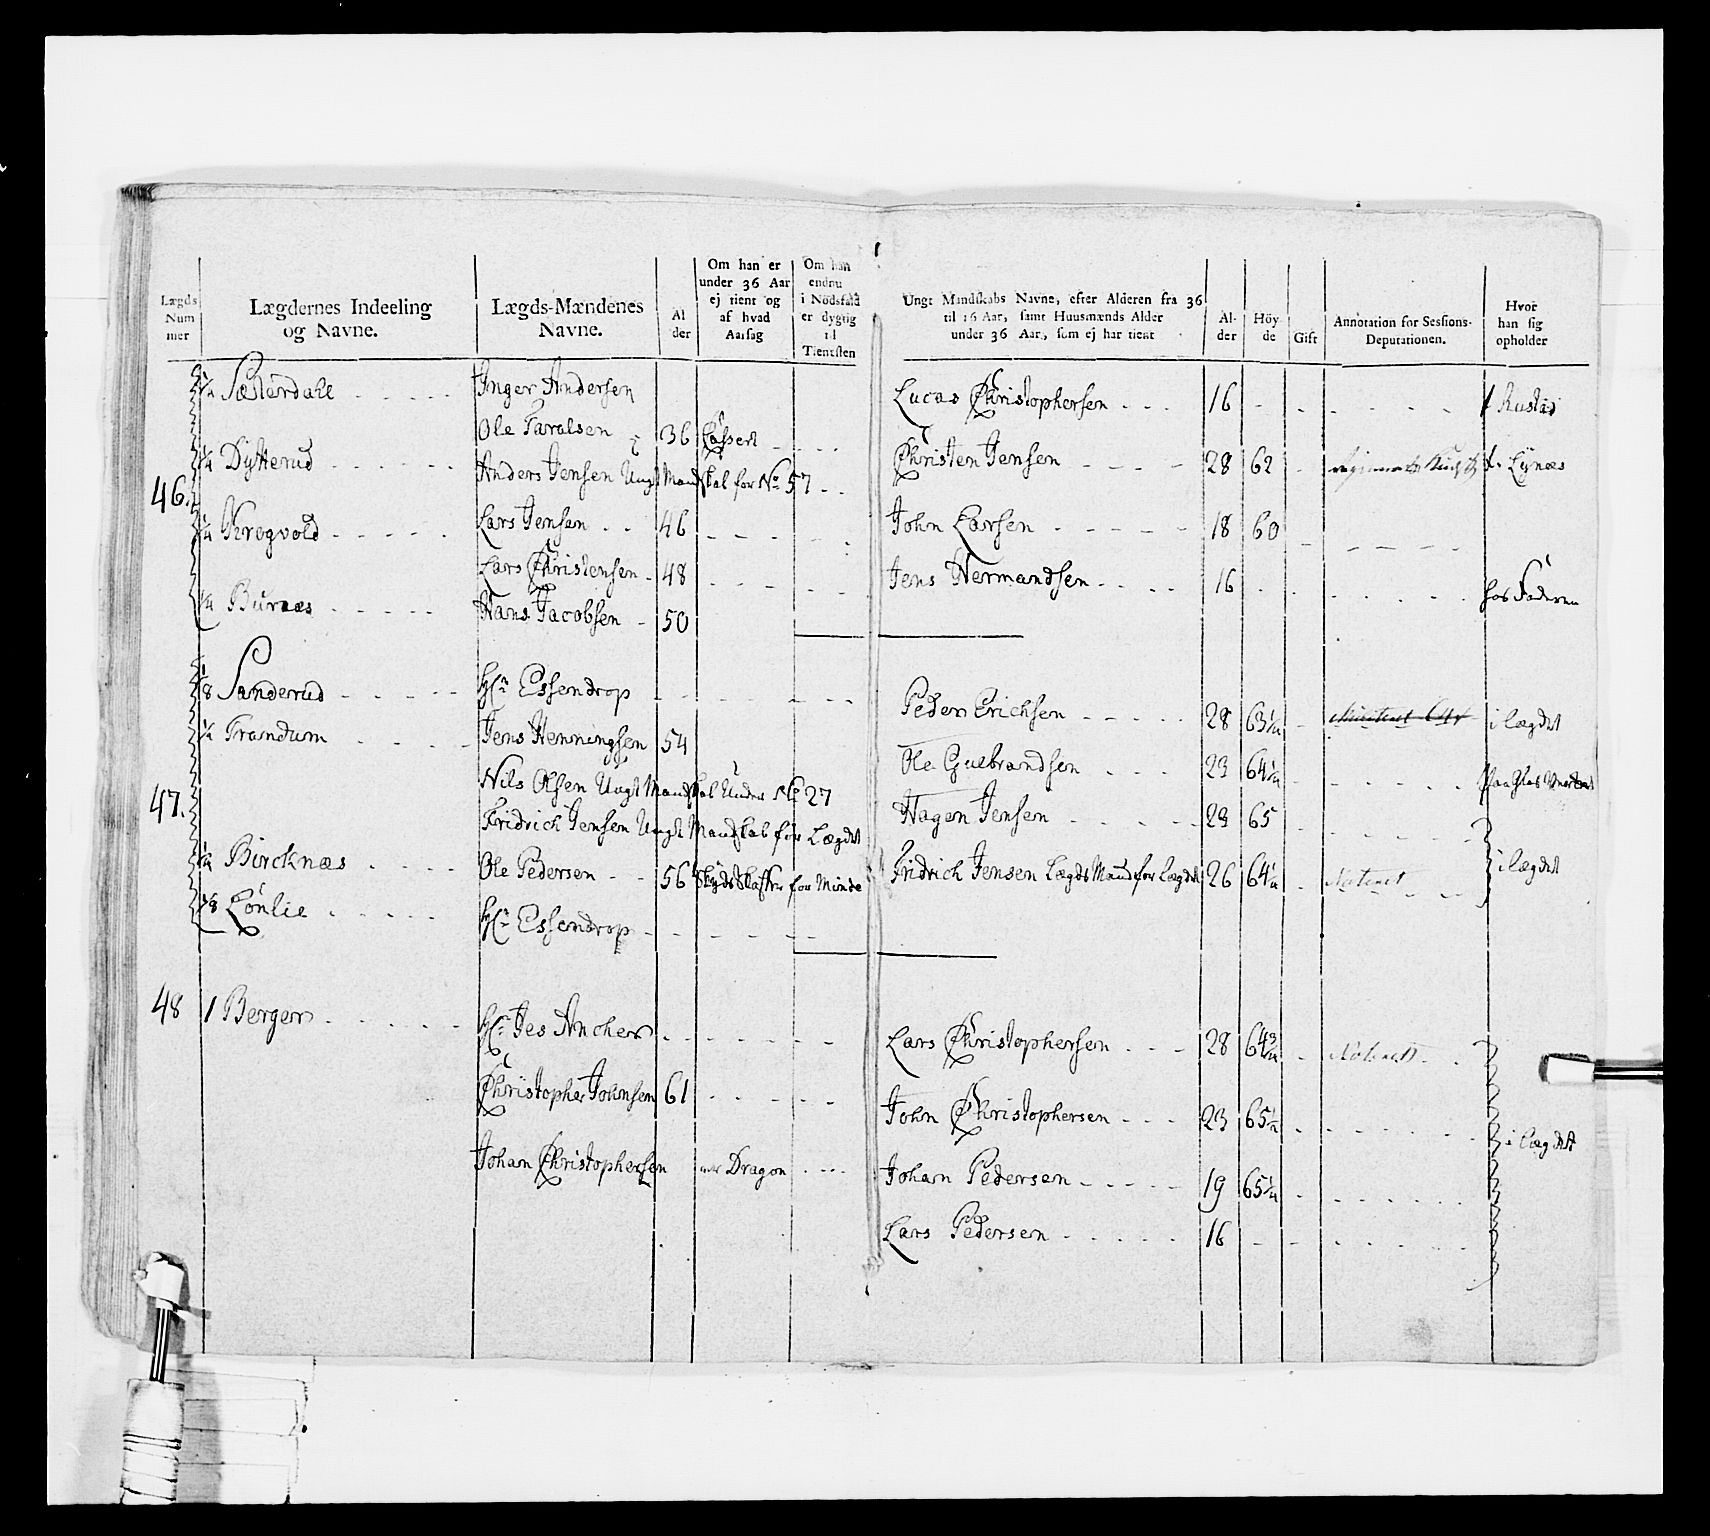 Lægds Nummer
Lægdernes Indeeling og Navne.
Lægds-Mændenes Navne.
Alder
Om han er under 36 Aar ej tient og af hvad Aarsag
Om han endnu i Nödsfald er dygtig til Tienesten
Ungt Mandskabs Navne, efter Alderen fra 36 til 16 Aar, samt Huusmænds Alder under 36 Aar, som ej har tient
Alder
Höyde
Gift
Annotation for Sessions-Deputationen.
Hvor han sig opholder
46.
1/4 Inger Andersen
Ole Taralsen 36
1/4 Dytterud
Anders Jensen Ungt Mandskab for No 57
1/4 Krogvold Lars Jensen 46
Lars Christensen 48
1/4 Hans Jacobsen 50
Lucas Christophersen 16
Christen Jensen 28 62
John Larsen 18 60
Jens Hermandsen 16 hos Faderen
47.
1/8 Sanderud Hr. Essendrop
1/4 Trandum Jens Henningsen 54
Nils Olsen Ungt Mandskab Under No 27
Fridrich Jensen Ungt Mandskab for Lægdet
1/2 Bircknæs Ole Pedersen 56 Skydsskaffer for Minde
1/8 Lönlie Hr. Essendrop
Peder Erichsen 28 63 1/2 i Lægdet
Ole Gulbrandsen 23 64 1/4
Hagen Jensen 23 65
Fridrich Jensen Lægds Mand for Lægdet 26 64 1/4 Noteret i Lægdet
48 1 Berger Hr. Jes Ancher
Christopher Johnsen 61
Johan Christophersen Dragon
Lars Christophersen 28 64 3/4 Noteret
John Christophersen 23 65 1/2 i Lægdet
Johan Pedersen 19 65 1/4
Lars Pedersen 16